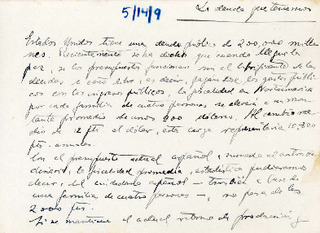 5/14/9
La deuda que tenemos
Estados Unidos tiene una deuda pública de 200.000 millo-
nes. Recientemente se ha dicho que cuando llegue la
paz, si los presupuestos funcionan con el
deudas a coño sobre, es decir, pagándose los gastos públi-
cos con los ingresos públicos, la fiscalidad en Norteamérica
por cada familia de cuatro personas se elevará a un mon-
tante promedio de unos 900 dólares. Al cambio me-
dio de 12 pts el dólar, esta carga representaría 10.800
pts. anuales.
En el presupuesto actual español,
la fiscalidad promedia, estadística pudiéramos
decir, del ciudadano español — también a base de
una familia de cuatro personas —, no pasa de las
2.000 pts.
Si se mantiene el actual ritmo de producción y